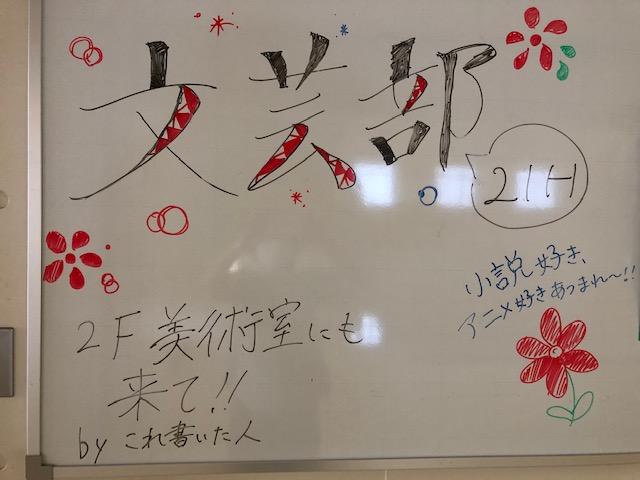 文芸部
21H
小説好き、
アニメ好きあつまれ〜!!
2F 美術室にも
来て!!
by これ書いた人